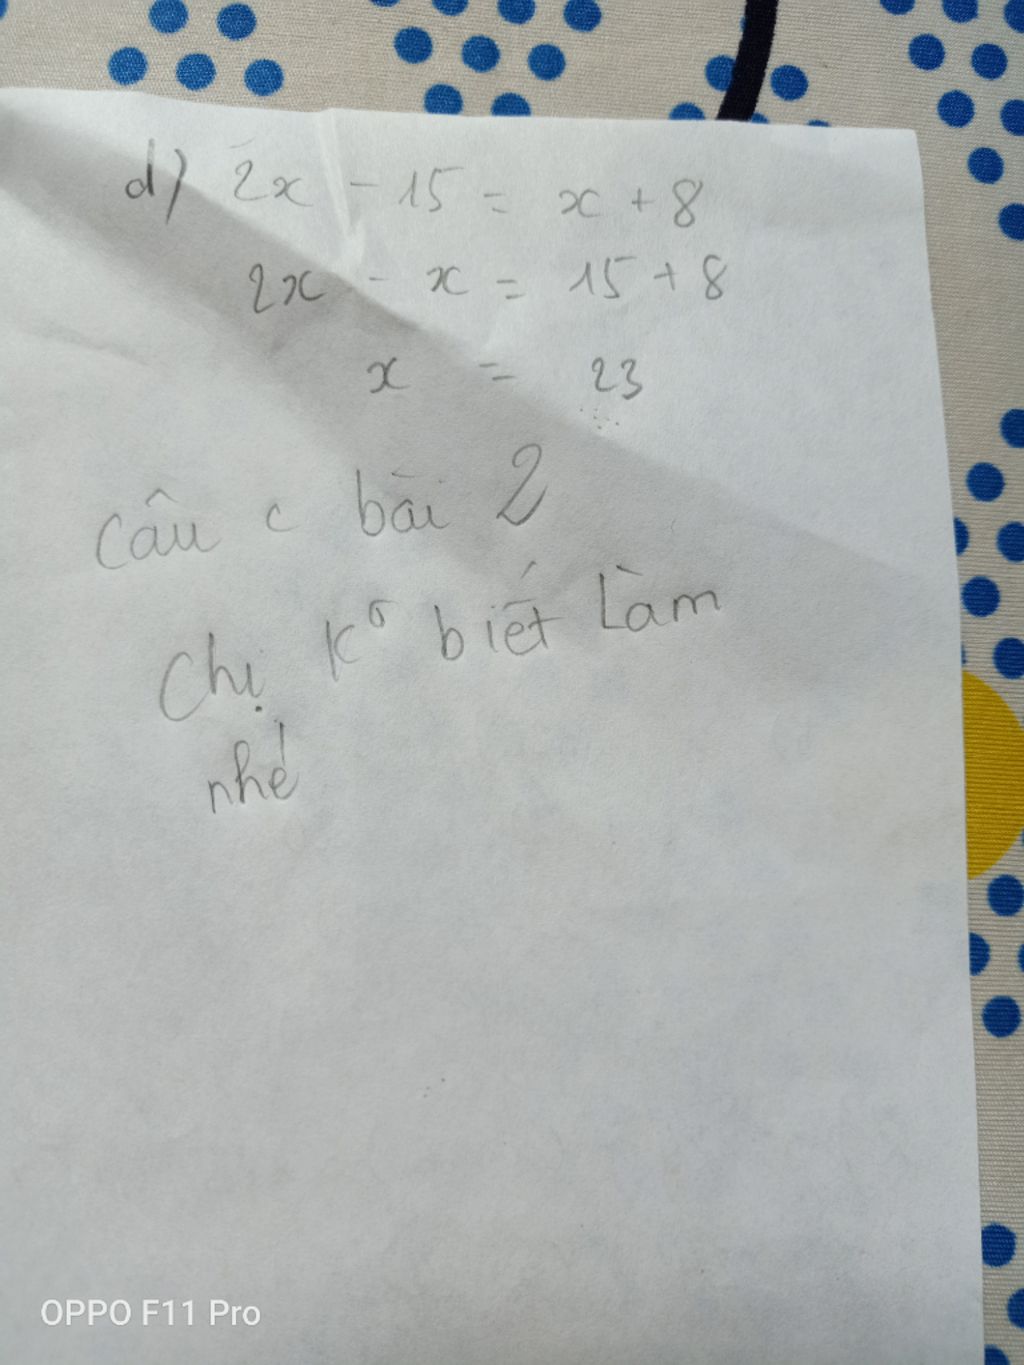 d) 2x - 15 = x + 8
2x - x = 15 + 8
x = 23
Câu c bài 2
Chị Kº biết Làm
nhé
OPPO F11 Pro